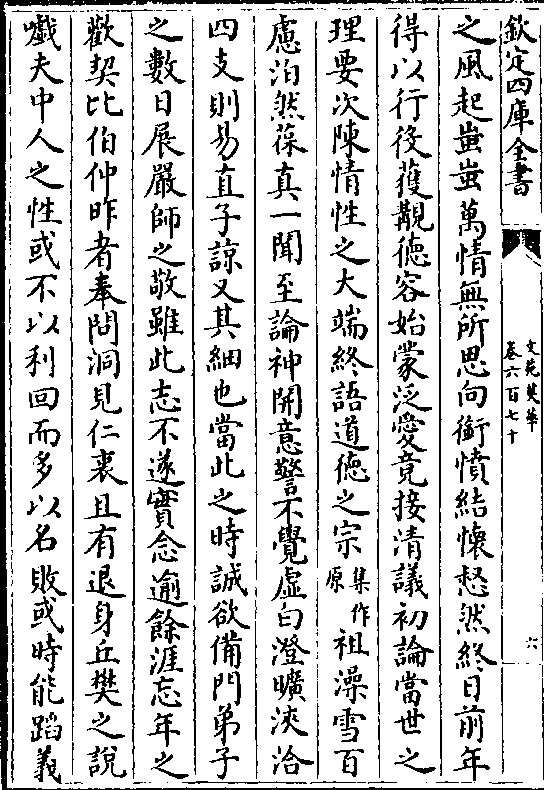 欽定四庫全書
文苑英華
卷六百七十
六
之風起蚩蚩萬情無所思向銜憤結懷愁然終日前年
得以行役獲覩德容始蒙泛愛竟接清議初論當世之
理要次陳情性之大端終語道德之宗集作原祖澡雪百
慮泊然葆真一聞至論神開意警不覺虛白澄曠浹洽
四支則易直子諒又其細也當此之時誠欲備門弟子
之數日展嚴師之敬雖此志不遂實念逾餘涯忘年之
歡契比伯仲昨者奉問洞見仁衷且有退身丘樊之說
戲夫中人之性或不以利回而多以名敗或時能蹈義